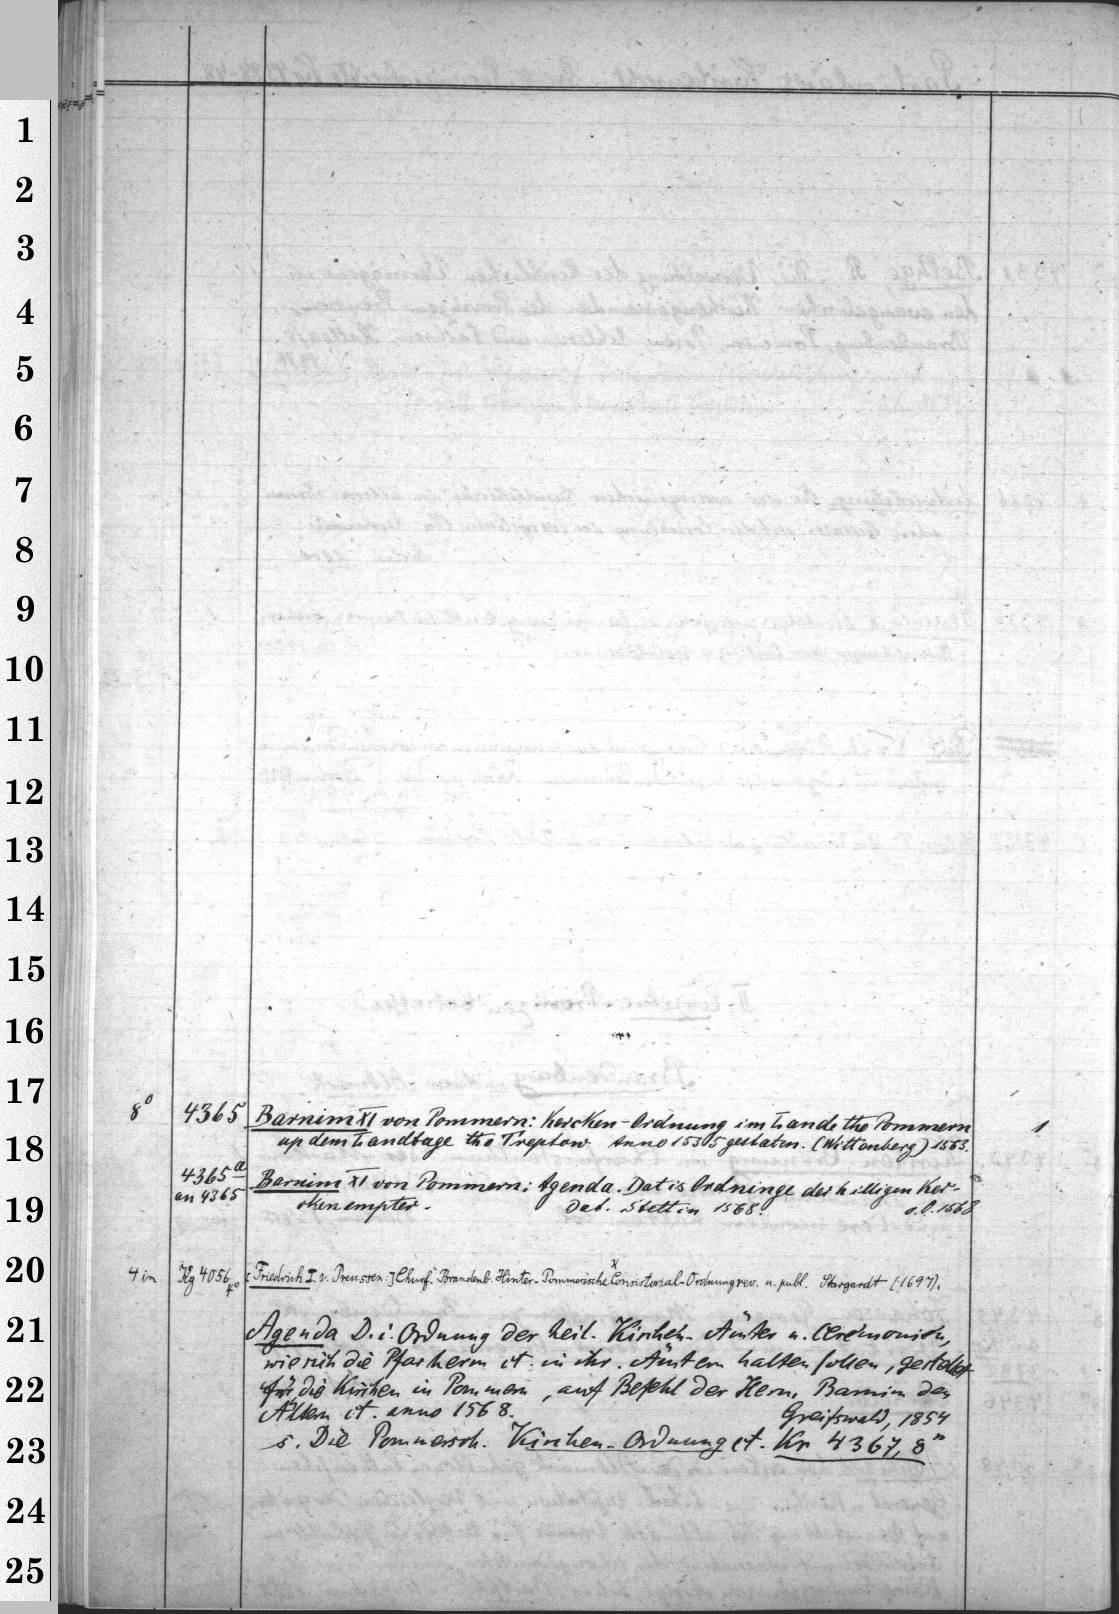 1
2
3
4
5
6
7
8
9
10
11
12
13
14
15
16
17
18
19
20
21
22
23
24
25
8° 4365 Barnim XI von Pommern: Kercken-Ordnung im Lande tho Pommern 1
up dem Landtage tho Treptow Anno 1535 gestaten. (Wittenberg) 1563.
4365a Barnim XI von Pommern: Agenda. Dat is Ordninge der hilligen Ker-
an 4365 ckenempter. Dat. Stettin 1568. o.O. 1568
4 in Kg 4056 4° [Friedrich I. v. Preussen:] Churf. Brandenb. Hinter-Pommerische Consistorial-Ordnung rev. u. publ. Stargardt (1697).
Agenda D. i. Ordnung der heil. Kirchen-Ämter u. Ceremonien,
wie sich die Pfarherrn ct. in ihr. Ämtern halten sollen, gestellet
für die Kirchen in Pommern, auf Befehl der Herrn, Barnim den
Ältern ct. anno 1568. Greifswald, 1854
s. Die Pommersch. Kirchen-Ordnung ct. Kr 4367, 8°